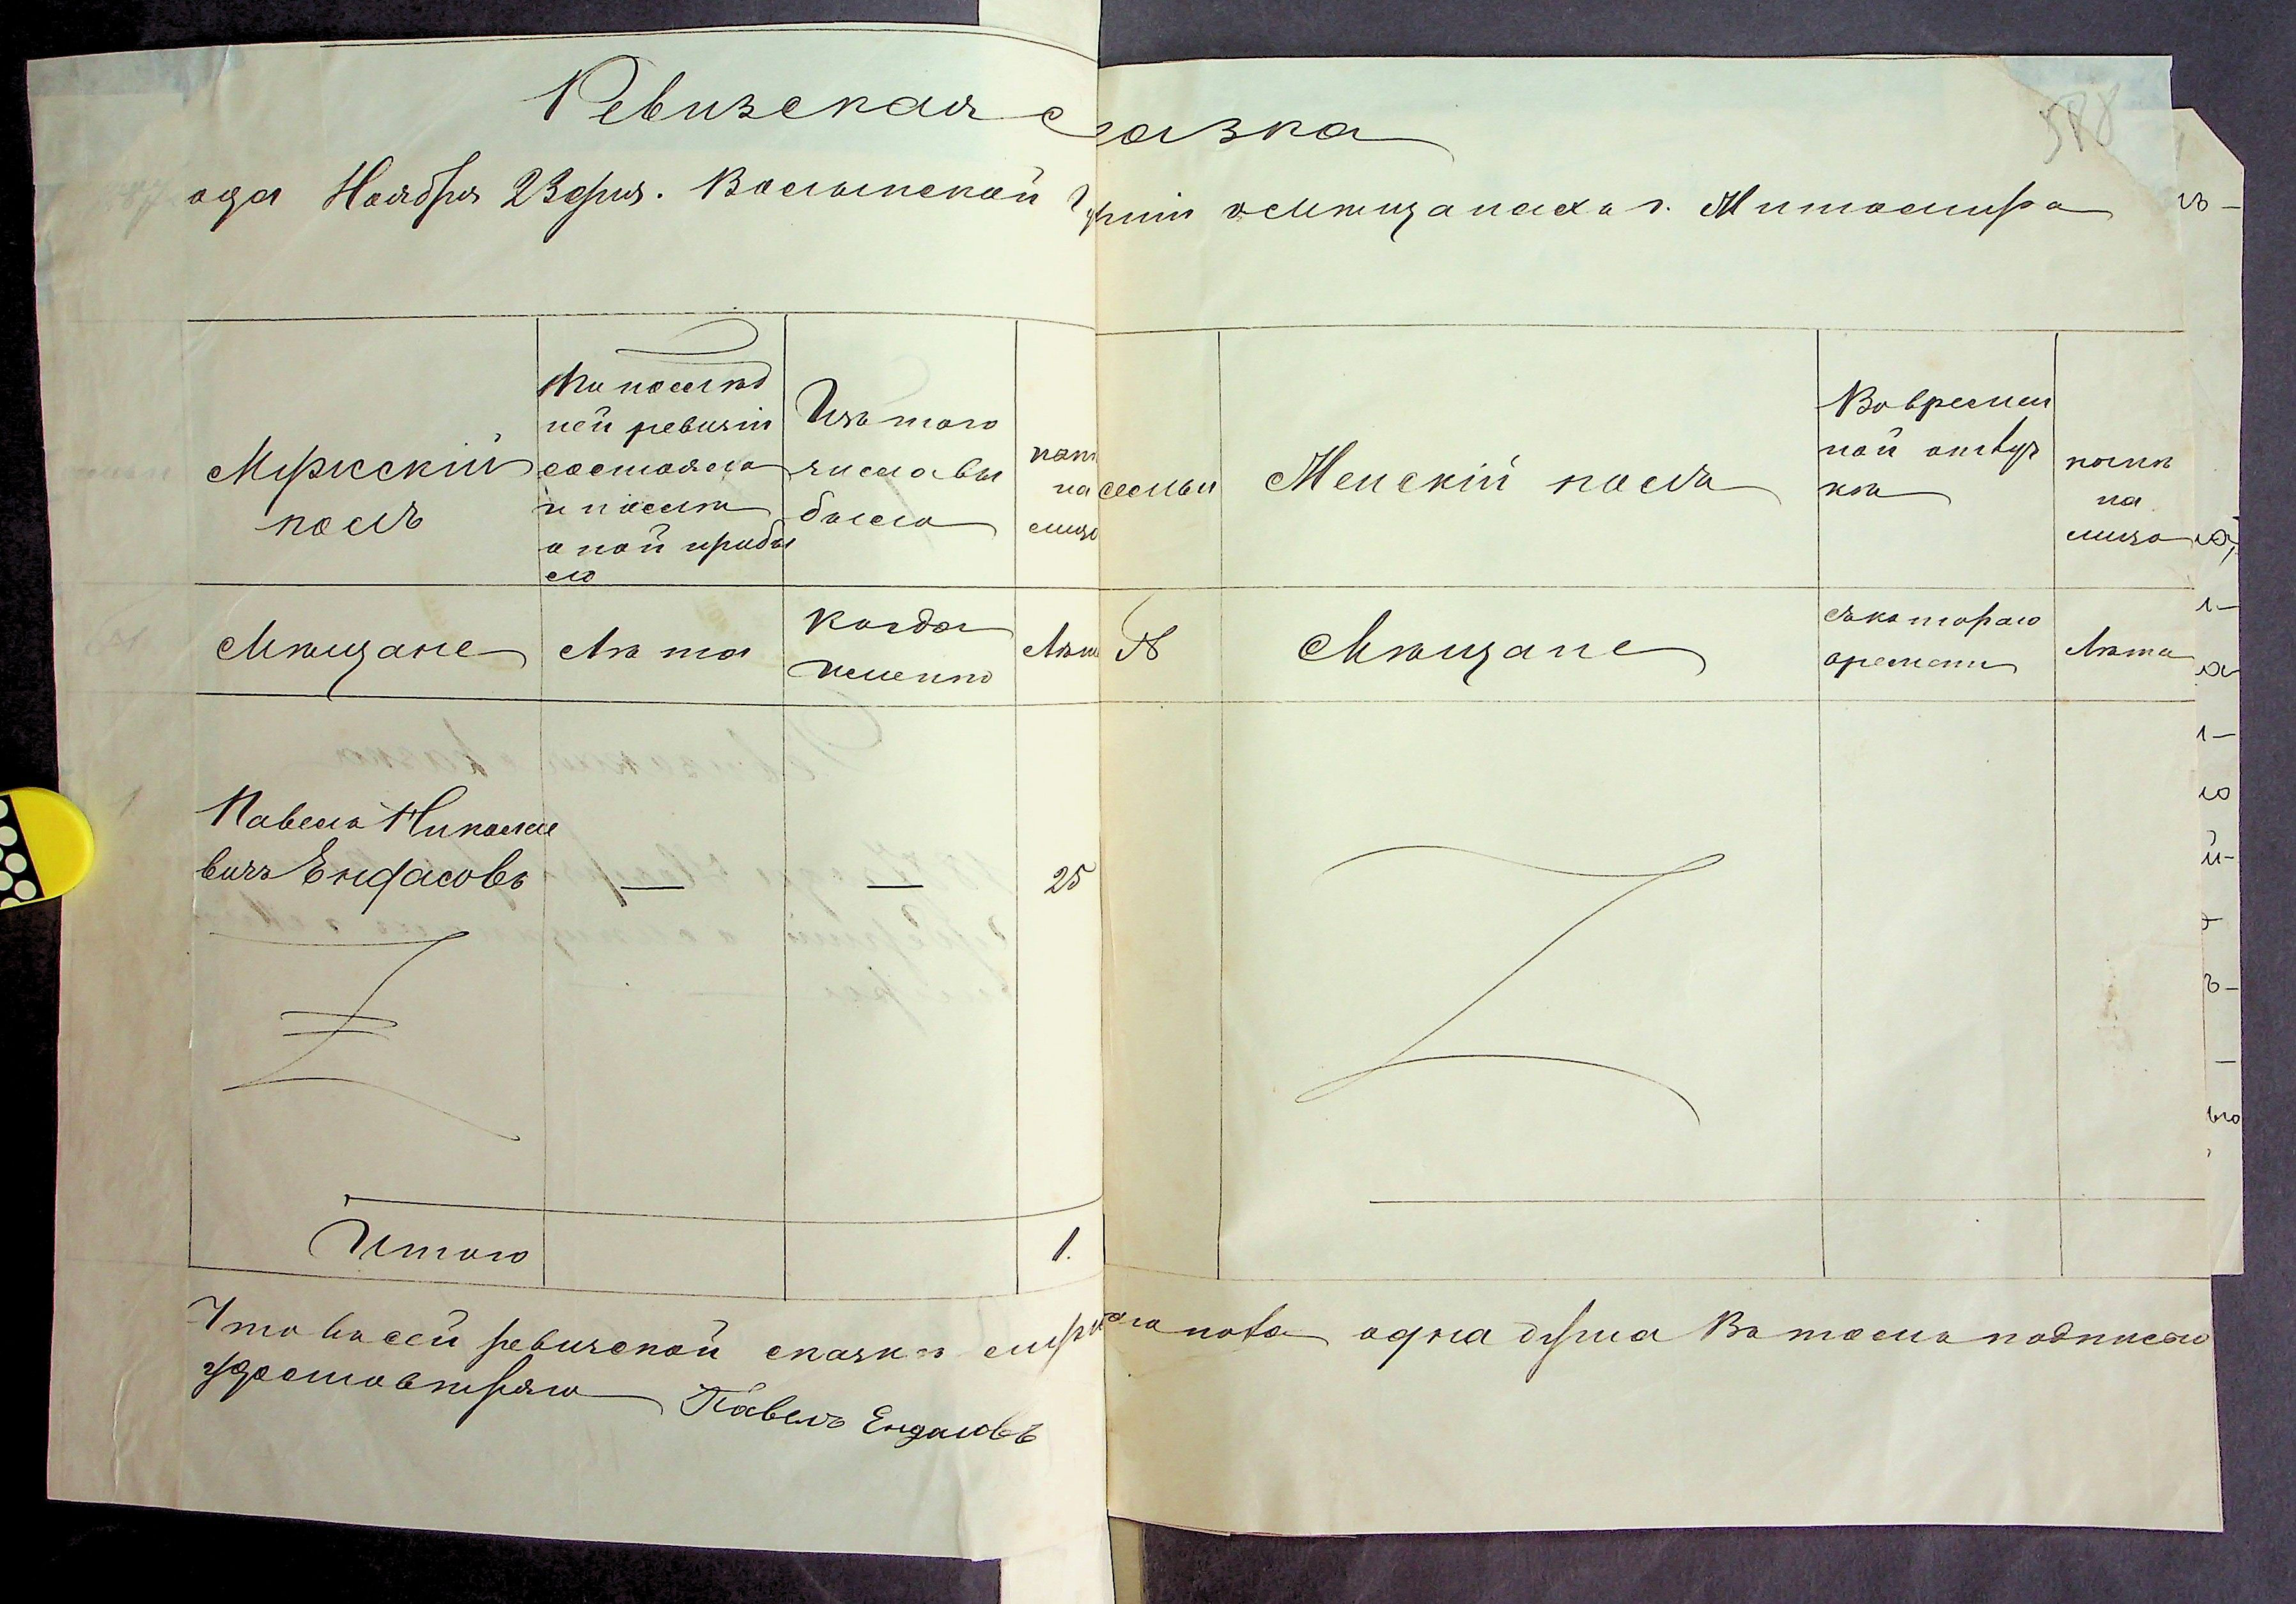 Ревизская сказка
588
ода Ноября 23 дня. Волынской Губерніи о мѣщанахъ г. Житомира
Мужскій
полъ
По послѣд
ней ревизіи
состояло
и послѣ
оной прибы
ло
Изъ того
числа вы
было
нали
на
лицо
семьи
Женскій полъ
Во времен
ной отлуч
кѣ
нынѣ
на
лицо
Мѣщане
Лѣта
Когда
именно
Лѣта
№
Мѣщане
съ котораго
времени
Лѣта
Павелъ Николае
вичъ Ендасовъ — — 25
Итого 1.
Что въ сей ревизской сказкѣ одна душа въ томъ подписью
удостовѣряю Павелъ Ендасовъ